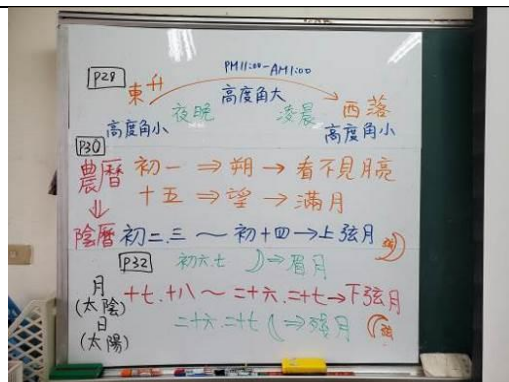 P29
PM11:00-AM1:00
東升 → 西落
夜晚 高度角大 凌晨
高度角小 高度角小
P30
農曆 初一 ⇒ 朔 → 看不見月亮
⇓ 十五 ⇒ 望 → 滿月
陰曆 初二.三 ~ 初十四 → 上弦月
P32 初六.七 ⇒ 眉月
月(太陰) 十七.十八 ~ 二十六.二十七 → 下弦月
日(太陽) 二十六.二十七 ⇒ 殘月